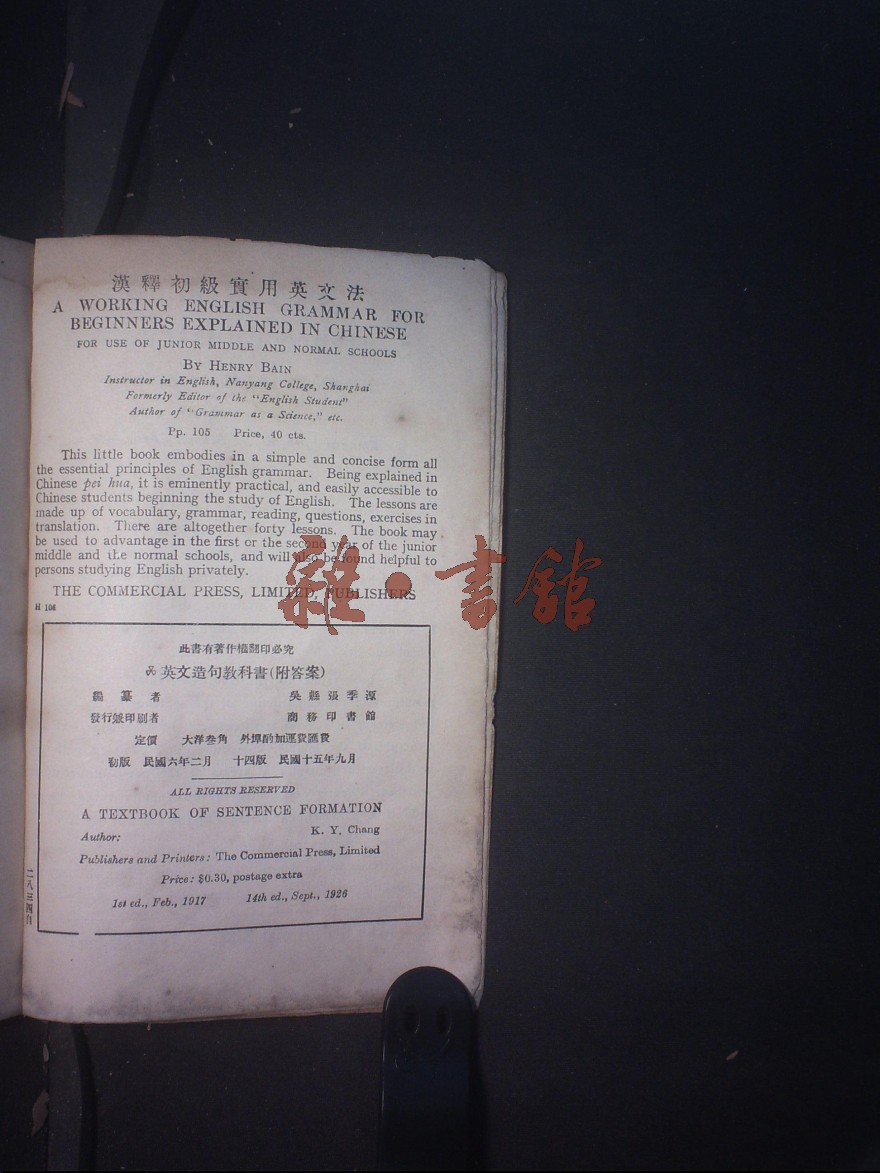 漢釋初級實用英文法
A WORKING ENGLISH GRAMMAR FOR
BEGINNERS EXPLAINED IN CHINESE
FOR USE OF JUNIOR MIDDLE AND NORMAL SCHOOLS
BY HENRY BAIN
Instructor in English, Nanyang College, Shanghai
Formerly Editor of the "English Student"
Author of "Grammar as a Science," etc.
Pp. 105 Price, 40 cts.
This little book embodies in a simple and concise form all
the essential principles of English grammar. Being explained in
Chinese pei hua, it is eminently practical, and easily accessible to
Chinese students beginning the study of English. The lessons are
made up of vocabulary, grammar, reading, questions, exercises in
translation. There are altogether forty lessons. The book may
be used to advantage in the first or the second year of the junior
middle and the normal schools, and will also be found helpful to
persons studying English privately.
THE COMMERCIAL PRESS, LIMITED, PUBLISHERS
H 106
雜·書館
此書有著作權翻印必究
英文造句教科書(附答案)
編纂者 吳縣張季源
發行兼印刷者 商務印書館
定價 大洋叁角 外埠酌加運費匯費
初版 民國六年二月 十四版 民國十五年九月
ALL RIGHTS RESERVED
A TEXTBOOK OF SENTENCE FORMATION
Author: K. Y. Chang
Publishers and Printers: The Commercial Press, Limited
Price: $0.30, postage extra
1st ed., Feb., 1917 14th ed., Sept., 1926
二八三四